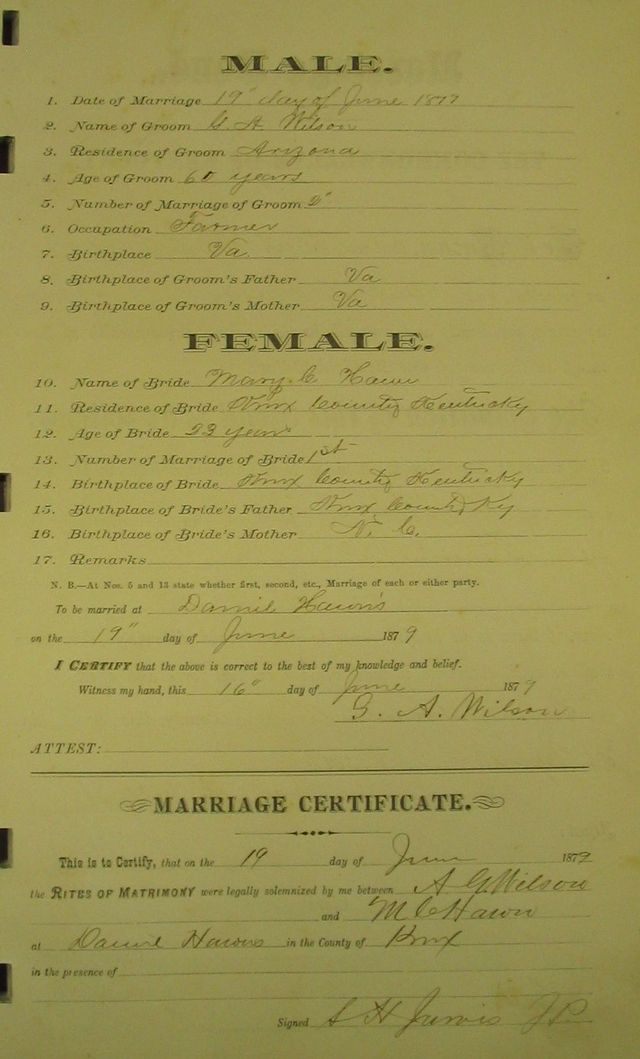 MALE.
1. Date of Marriage 19" day of June 1879
2. Name of Groom G. A. Wilson
3. Residence of Groom Arizona
4. Age of Groom 60 years
5. Number of Marriage of Groom 2"
6. Occupation Farmer
7. Birthplace Va
8. Birthplace of Groom's Father Va
9. Birthplace of Groom's Mother Va
FEMALE.
10. Name of Bride Mary C Hawn
11. Residence of Bride Knox County Kentucky
12. Age of Bride 23 years
13. Number of Marriage of Bride 1st
14. Birthplace of Bride Knox County Kentucky
15. Birthplace of Bride's Father Knox County Ky
16. Birthplace of Bride's Mother N. C.
17. Remarks
N. B.—At Nos. 5 and 13 state whether first, second, etc., Marriage of each or either party.
To be married at Daniel Hawn's
on the 19" day of June 1879
I CERTIFY that the above is correct to the best of my knowledge and belief.
Witness my hand, this 16" day of June 1879
G. A. Wilson
ATTEST:
MARRIAGE CERTIFICATE.
This is to Certify, that on the 19 day of June 1879
the RITES OF MATRIMONY were legally solemnized by me between A G Wilson
and M C Hawn
at Daniel Hawns in the County of Knox
in the presence of
Signed S H Jarvis J P